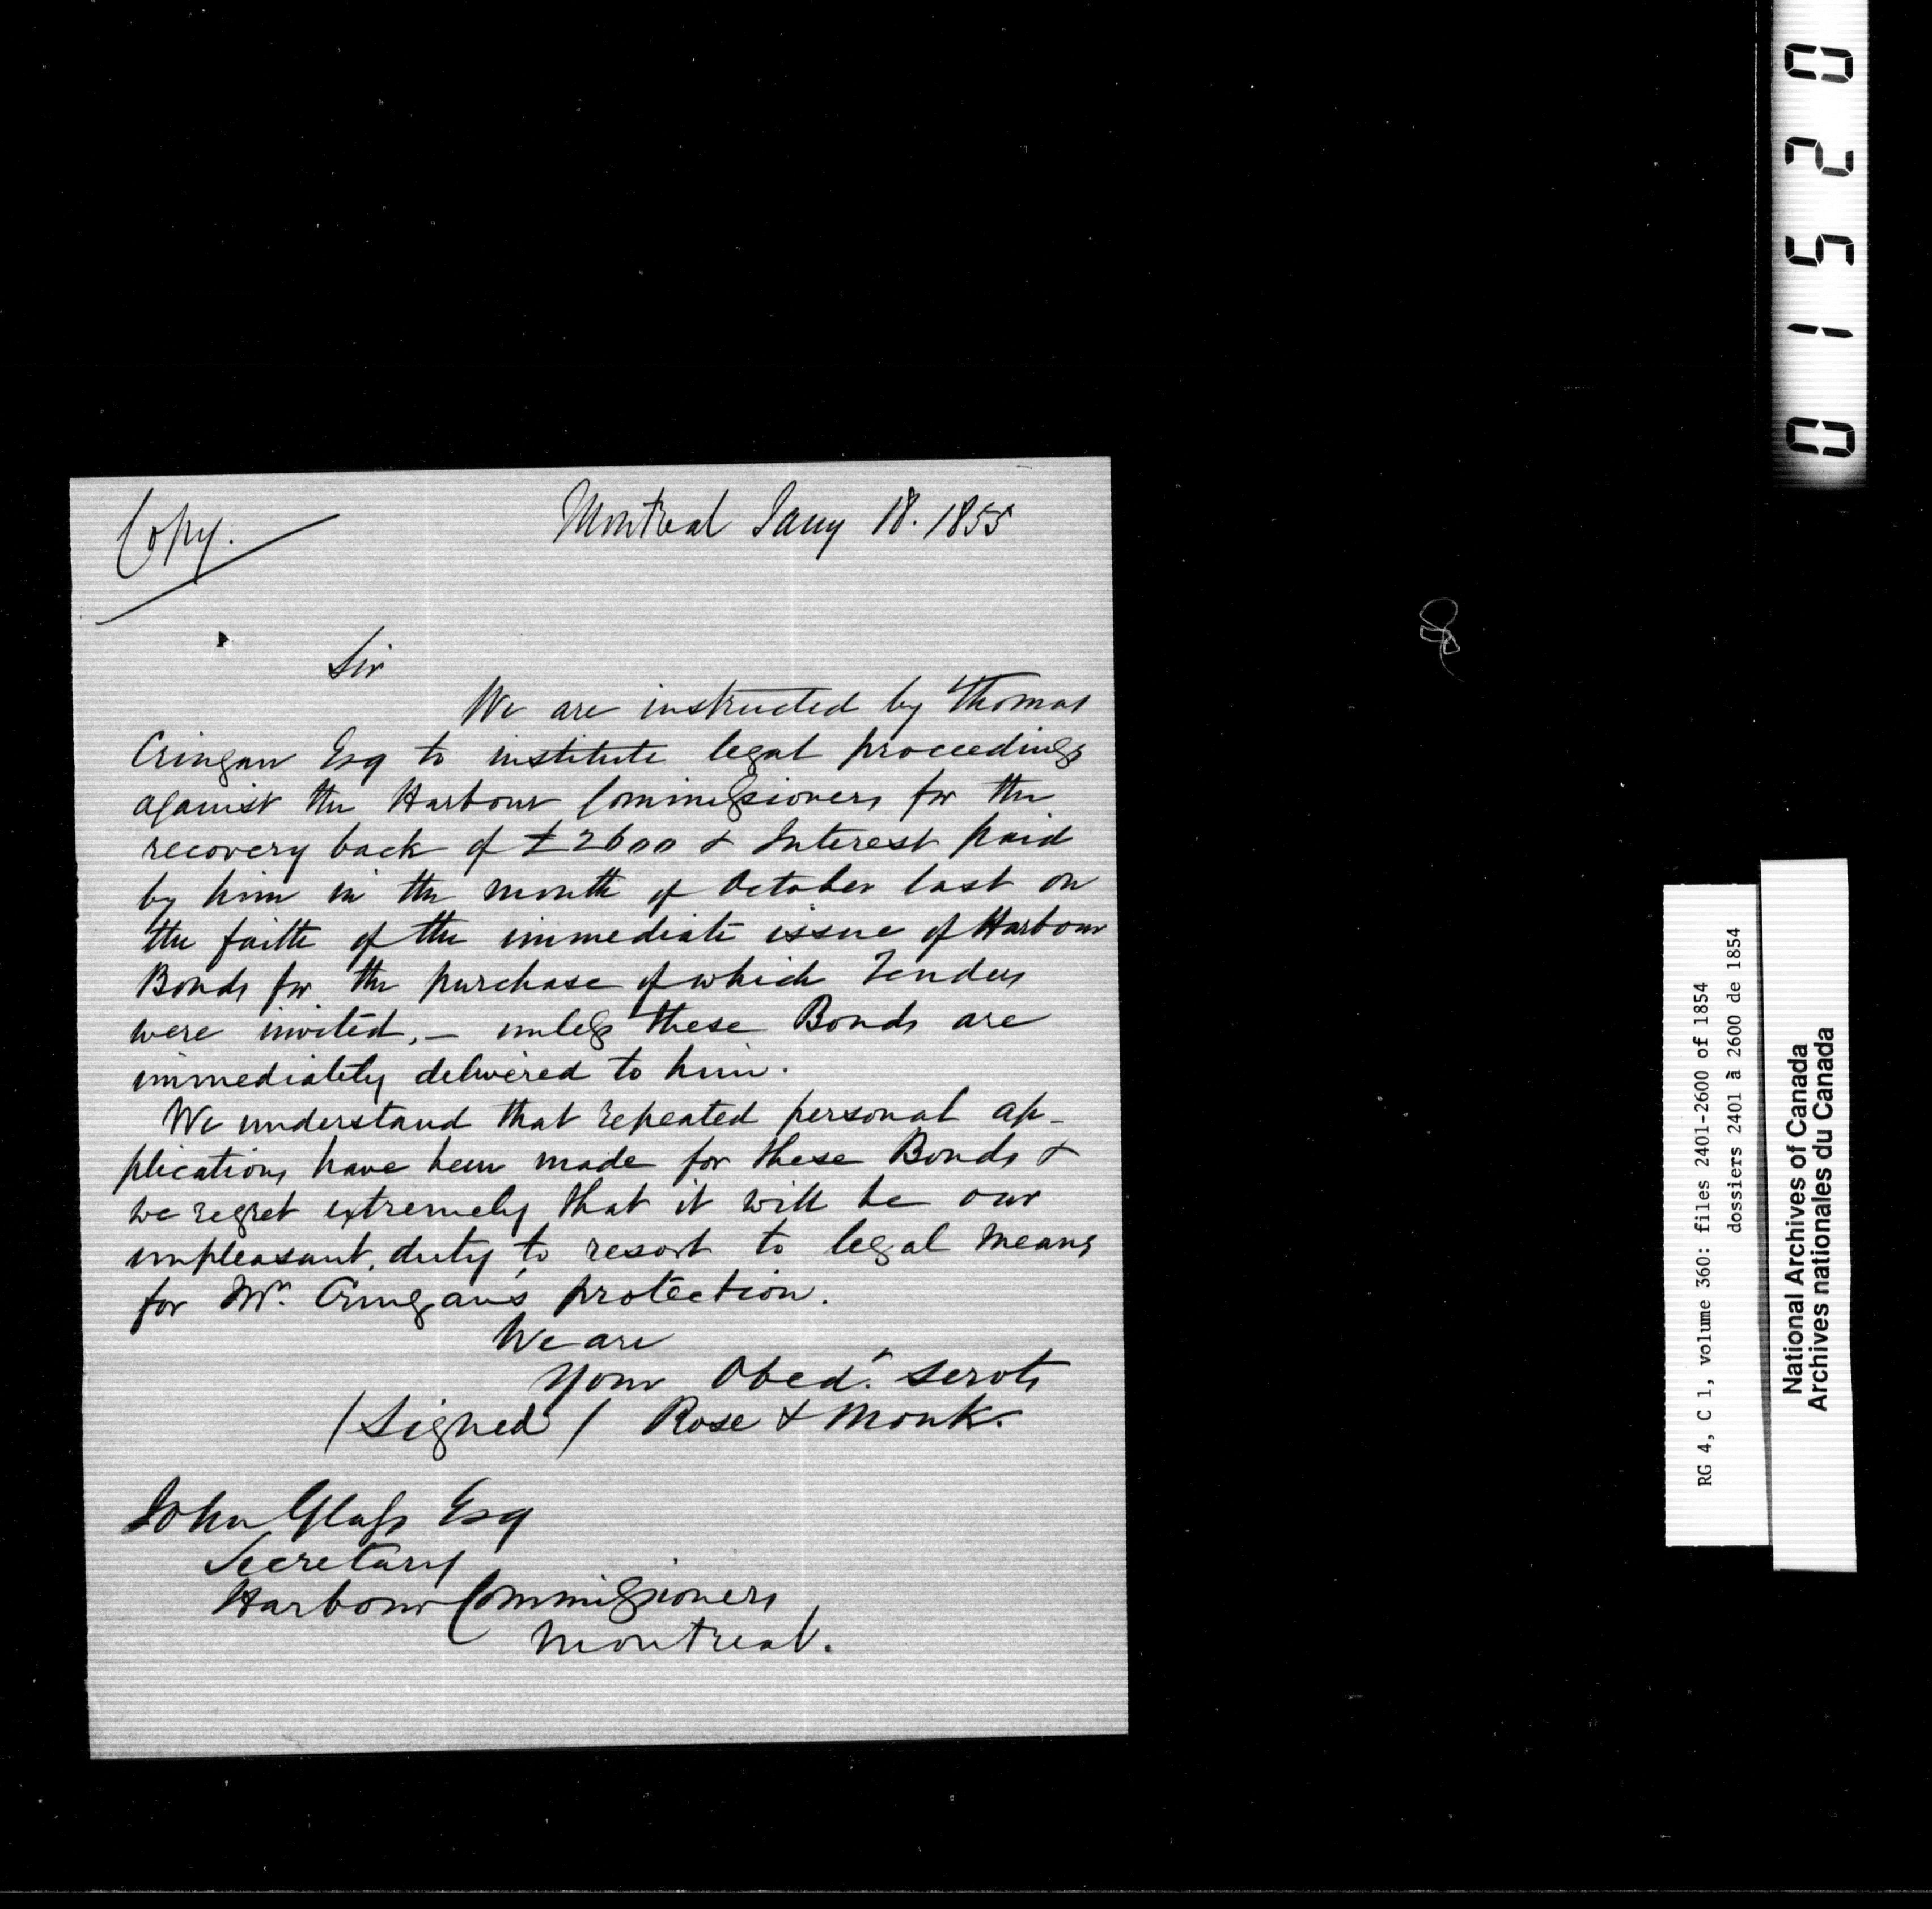 Copy.
Montreal Jany 18. 1855
Sir
We are instructed by Thomas
Cringan Esq to institute legal proceedings
against the Harbour Commissioners for the
recovery back of £2600 & Interest paid
by him in the month of October last on
the faith of the immediate issue of Harbour
Bonds for the purchase of which Tenders
were invited, — unless these Bonds are
immediately delivered to him.
We understand that repeated personal ap-
plications have been made for these Bonds &
we regret extremely that it will be our
unpleasant duty to resort to legal means
for Mr. Cringan's protection.
We are
Your Obedt. servts
(Signed) Rose & Monk.
John Glass Esq
Secretary
Harbour Commissioners
Montreal.
01520
RG 4, C 1, volume 360: files 2401-2600 of 1854
dossiers 2401 à 2600 de 1854
National Archives of Canada
Archives nationales du Canada